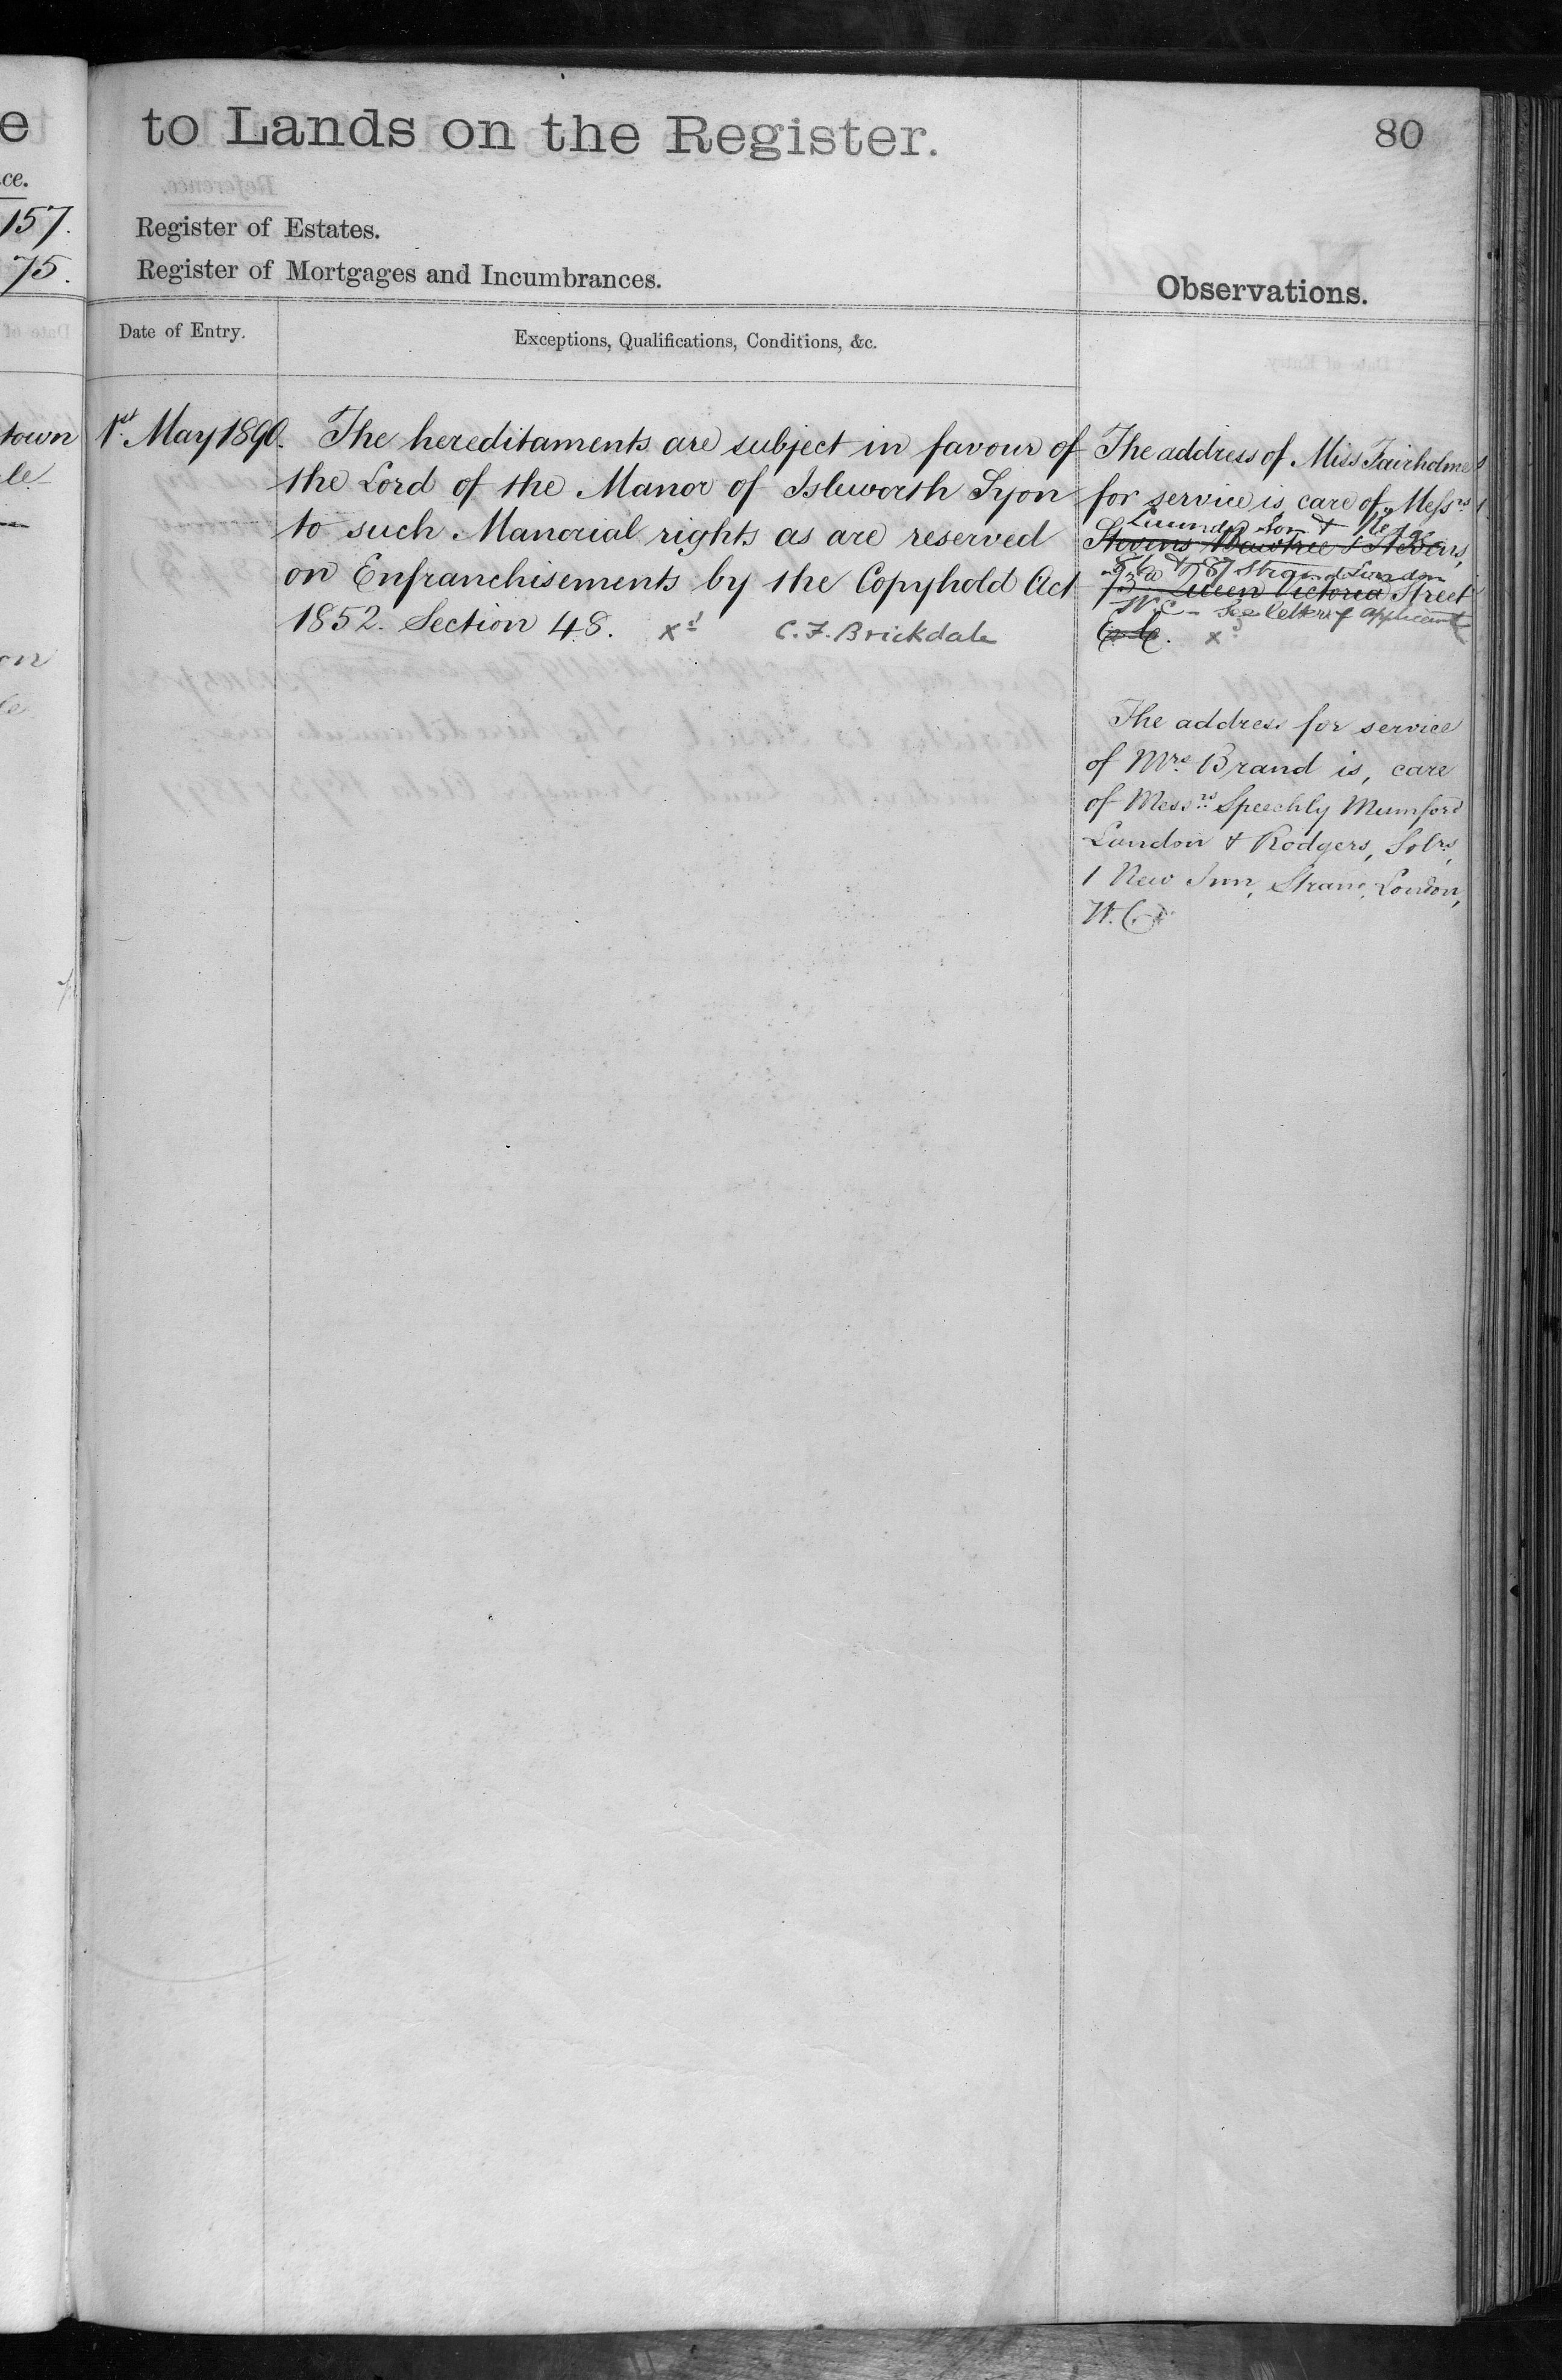 e
ce.
157.
75.
town
le
on
to Lands on the Register.
80
Register of Estates.
Register of Mortgages and Incumbrances.
Observations.
Date of Entry.
Exceptions, Qualifications, Conditions, &c.
1st May 1890.
The hereditaments are subject in favour of
the Lord of the Manor of Isleworth Syon
to such Manorial rights as are reserved
on Enfranchisements by the Copyhold Act
1852. Section 48. xd C. F. Brickdale
The address of Miss Fairholme
for service is care of Messrs
Son &
Stevens Bawtree & Stevens,
& 87 Strand London
73a Queen Victoria Street
W.C. - See letter of applicant
E.C. xd
The address for service
of Mrs Brand is, care
of Messrs Speechly Mumford
Landon & Rodgers, Solrs,
1 New Inn, Strand, London,
W.C.